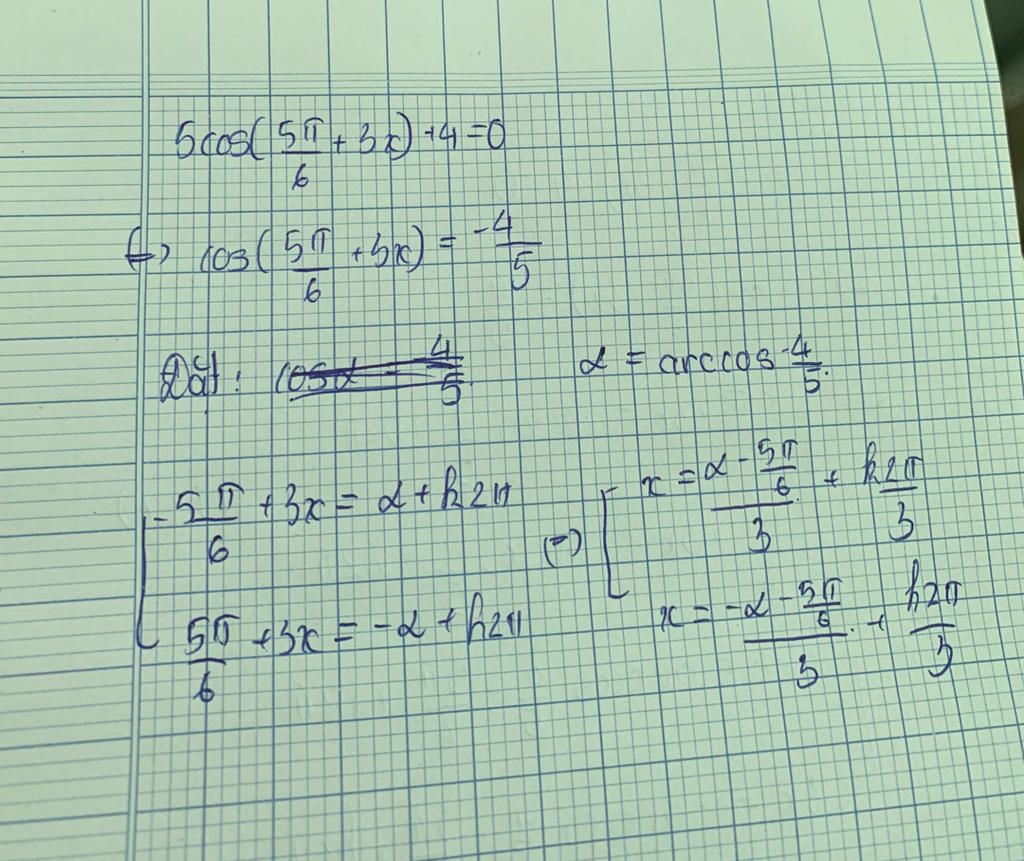 5cos(5π/6 + 3x) + 4 = 0
⇔ cos(5π/6 + 3x) = -4/5
Đặt: α = arccos -4/5.
[ 5π/6 + 3x = α + k2π ⇔ [ x = (α - 5π/6)/3 + k2π/3
5π/6 + 3x = -α + k2π x = (-α - 5π/6)/3 + k2π/3